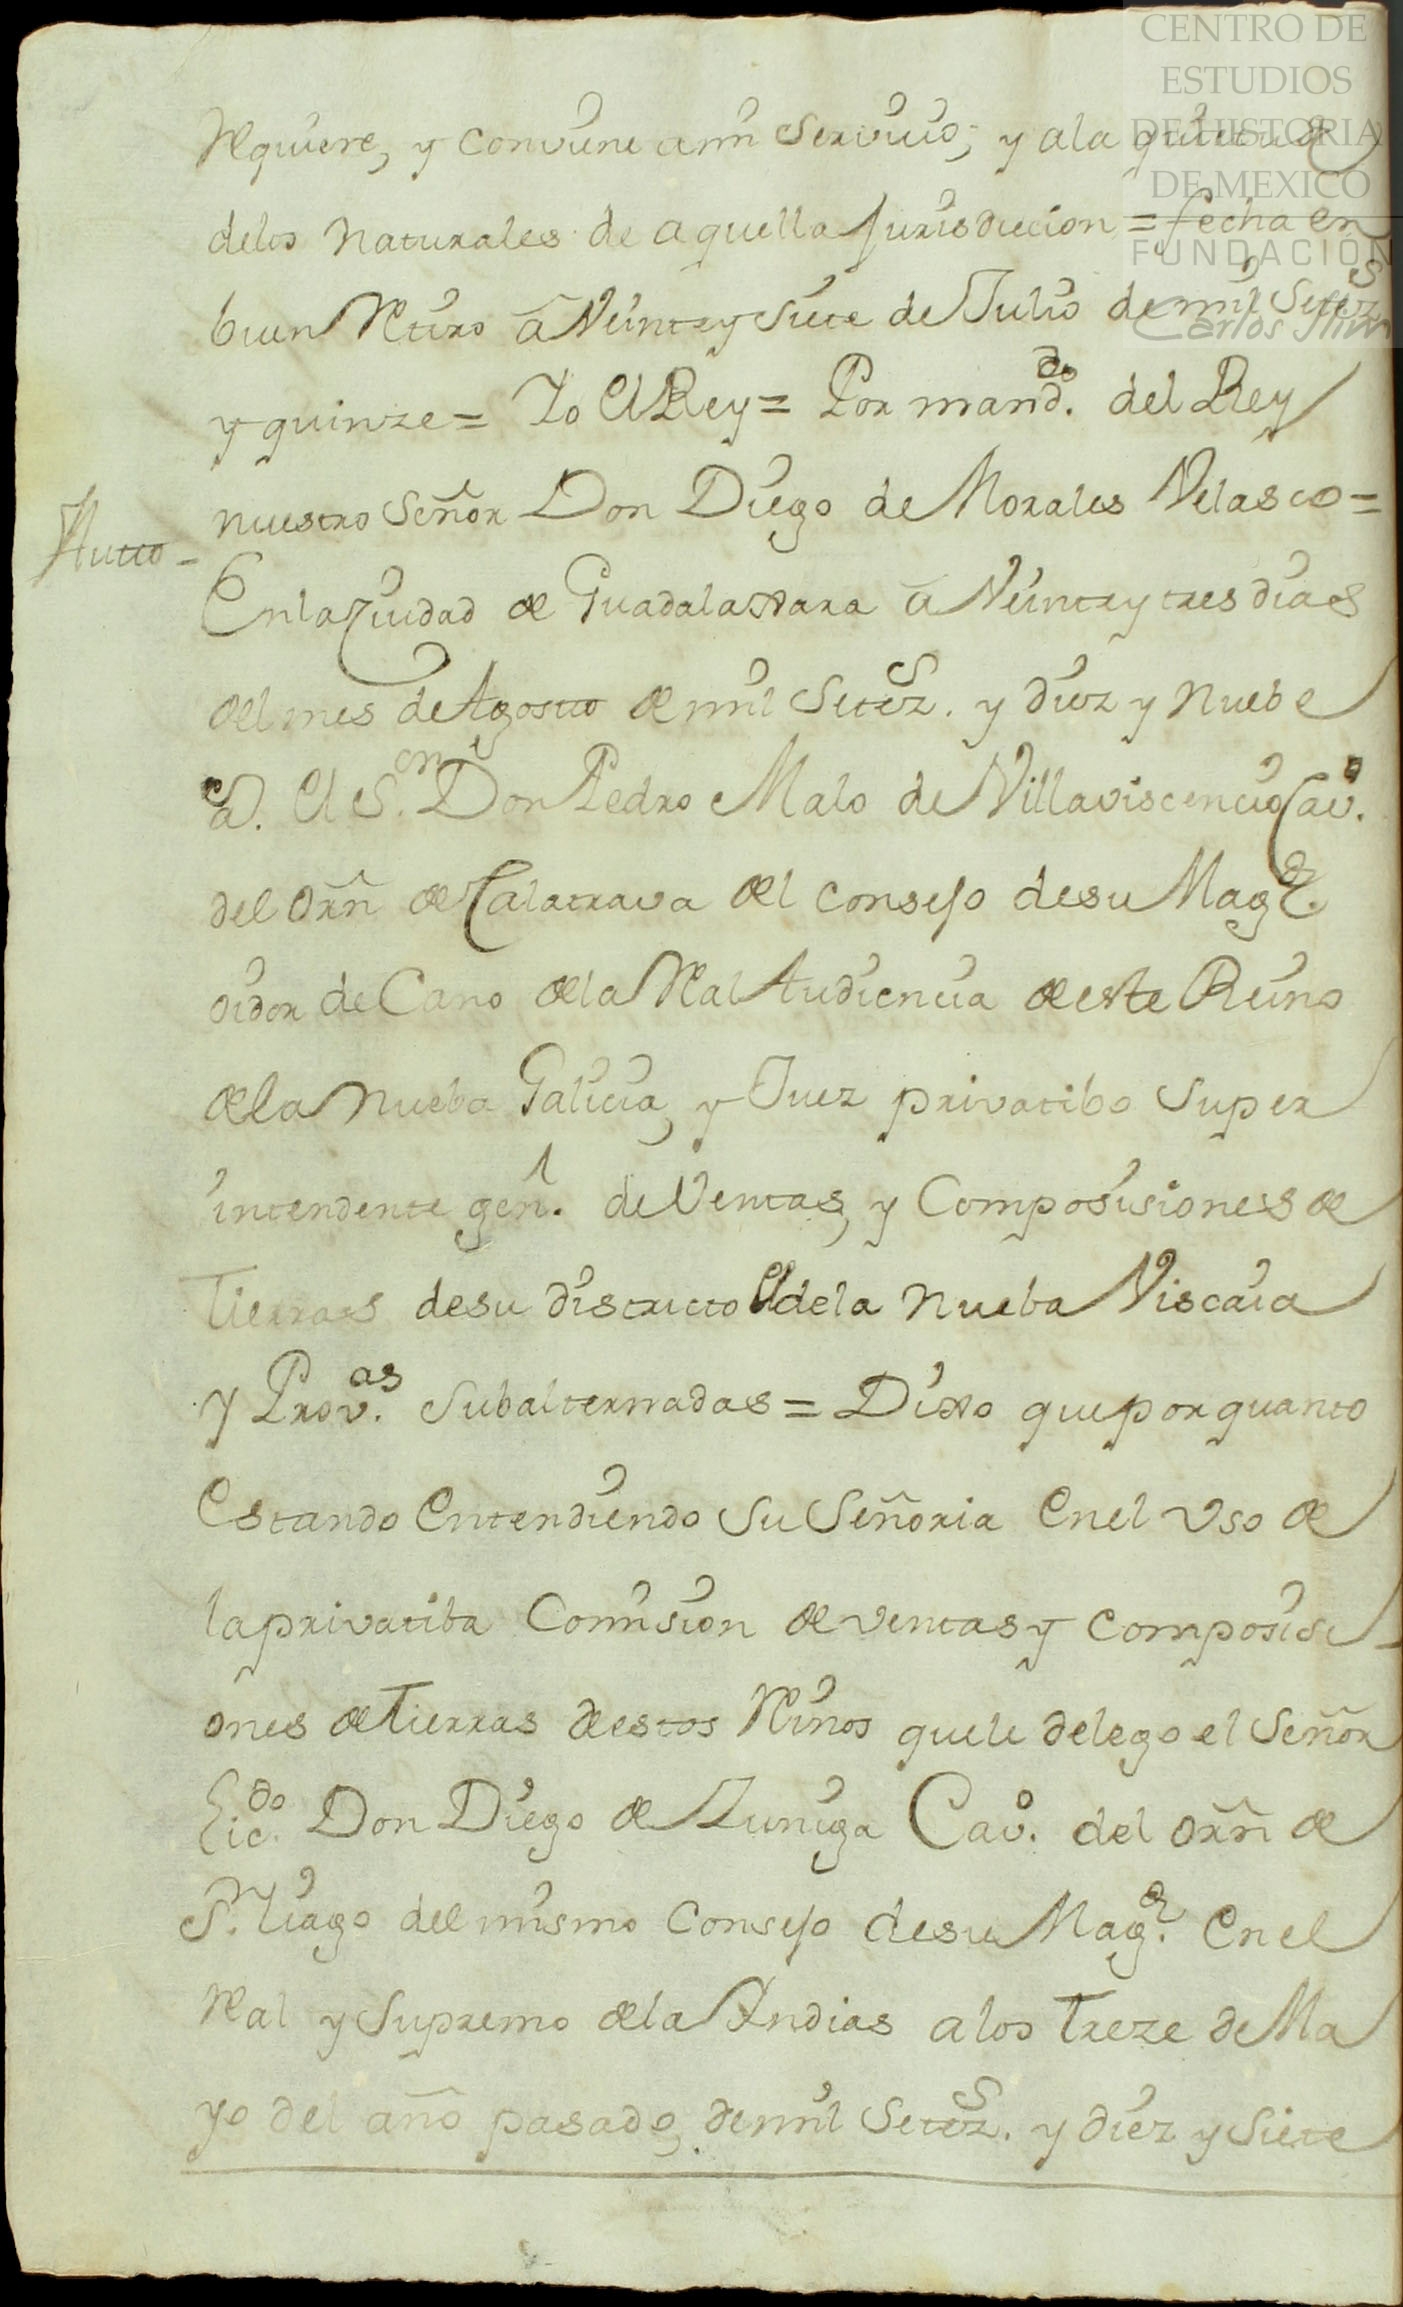 CENTRO DE
ESTUDIOS
DE HISTORIA
DE MEXICO
FUNDACIÓN
Carlos Slim
Requiere, y conviene a mi servicio; y ala quietud
delos naturales de aquella Jurisdiccion = fecha en
buen Retiro â Veinte y siete de Julio de mil Setez.s
y quinze = Yo El Rey = Por mand.do del Rey
nuestro Señor Don Diego de Morales Velasco =
Autto =
En la Ziudad de Guadalaxara â Veinte y tres dias
del mes de Agosto de mil Setez.s y diez y nuebe
a.s El S.or Don Pedro Malo de Villaviscencio Cav.o
del orñ de Calatrava del consejo de su Mag.d
oidor de Cano de la Real Audiencia de este Reino
de la Nueba Galicia, y Juez privatibo Super
intendente gen.l de Ventas, y Composisiones de
Tierras de su districto El de la Nueba Viscaia
y Prov.as Subalternadas = Dixo que por quanto
Estando Entendiendo Su Señoria En el Vso de
la privatiba Comision de ventas y Composisi-
ones de Tierras de estos Reinos que le delego el Señor
Lic.do Don Diego de Zuniga Cav.o del orñ de
S.n tiago del mismo Consejo de su Mag.d En el
Real y Supremo de la Yndias a los treze de Ma
yo del año pasado, de mil Setez.s y diez y Siete